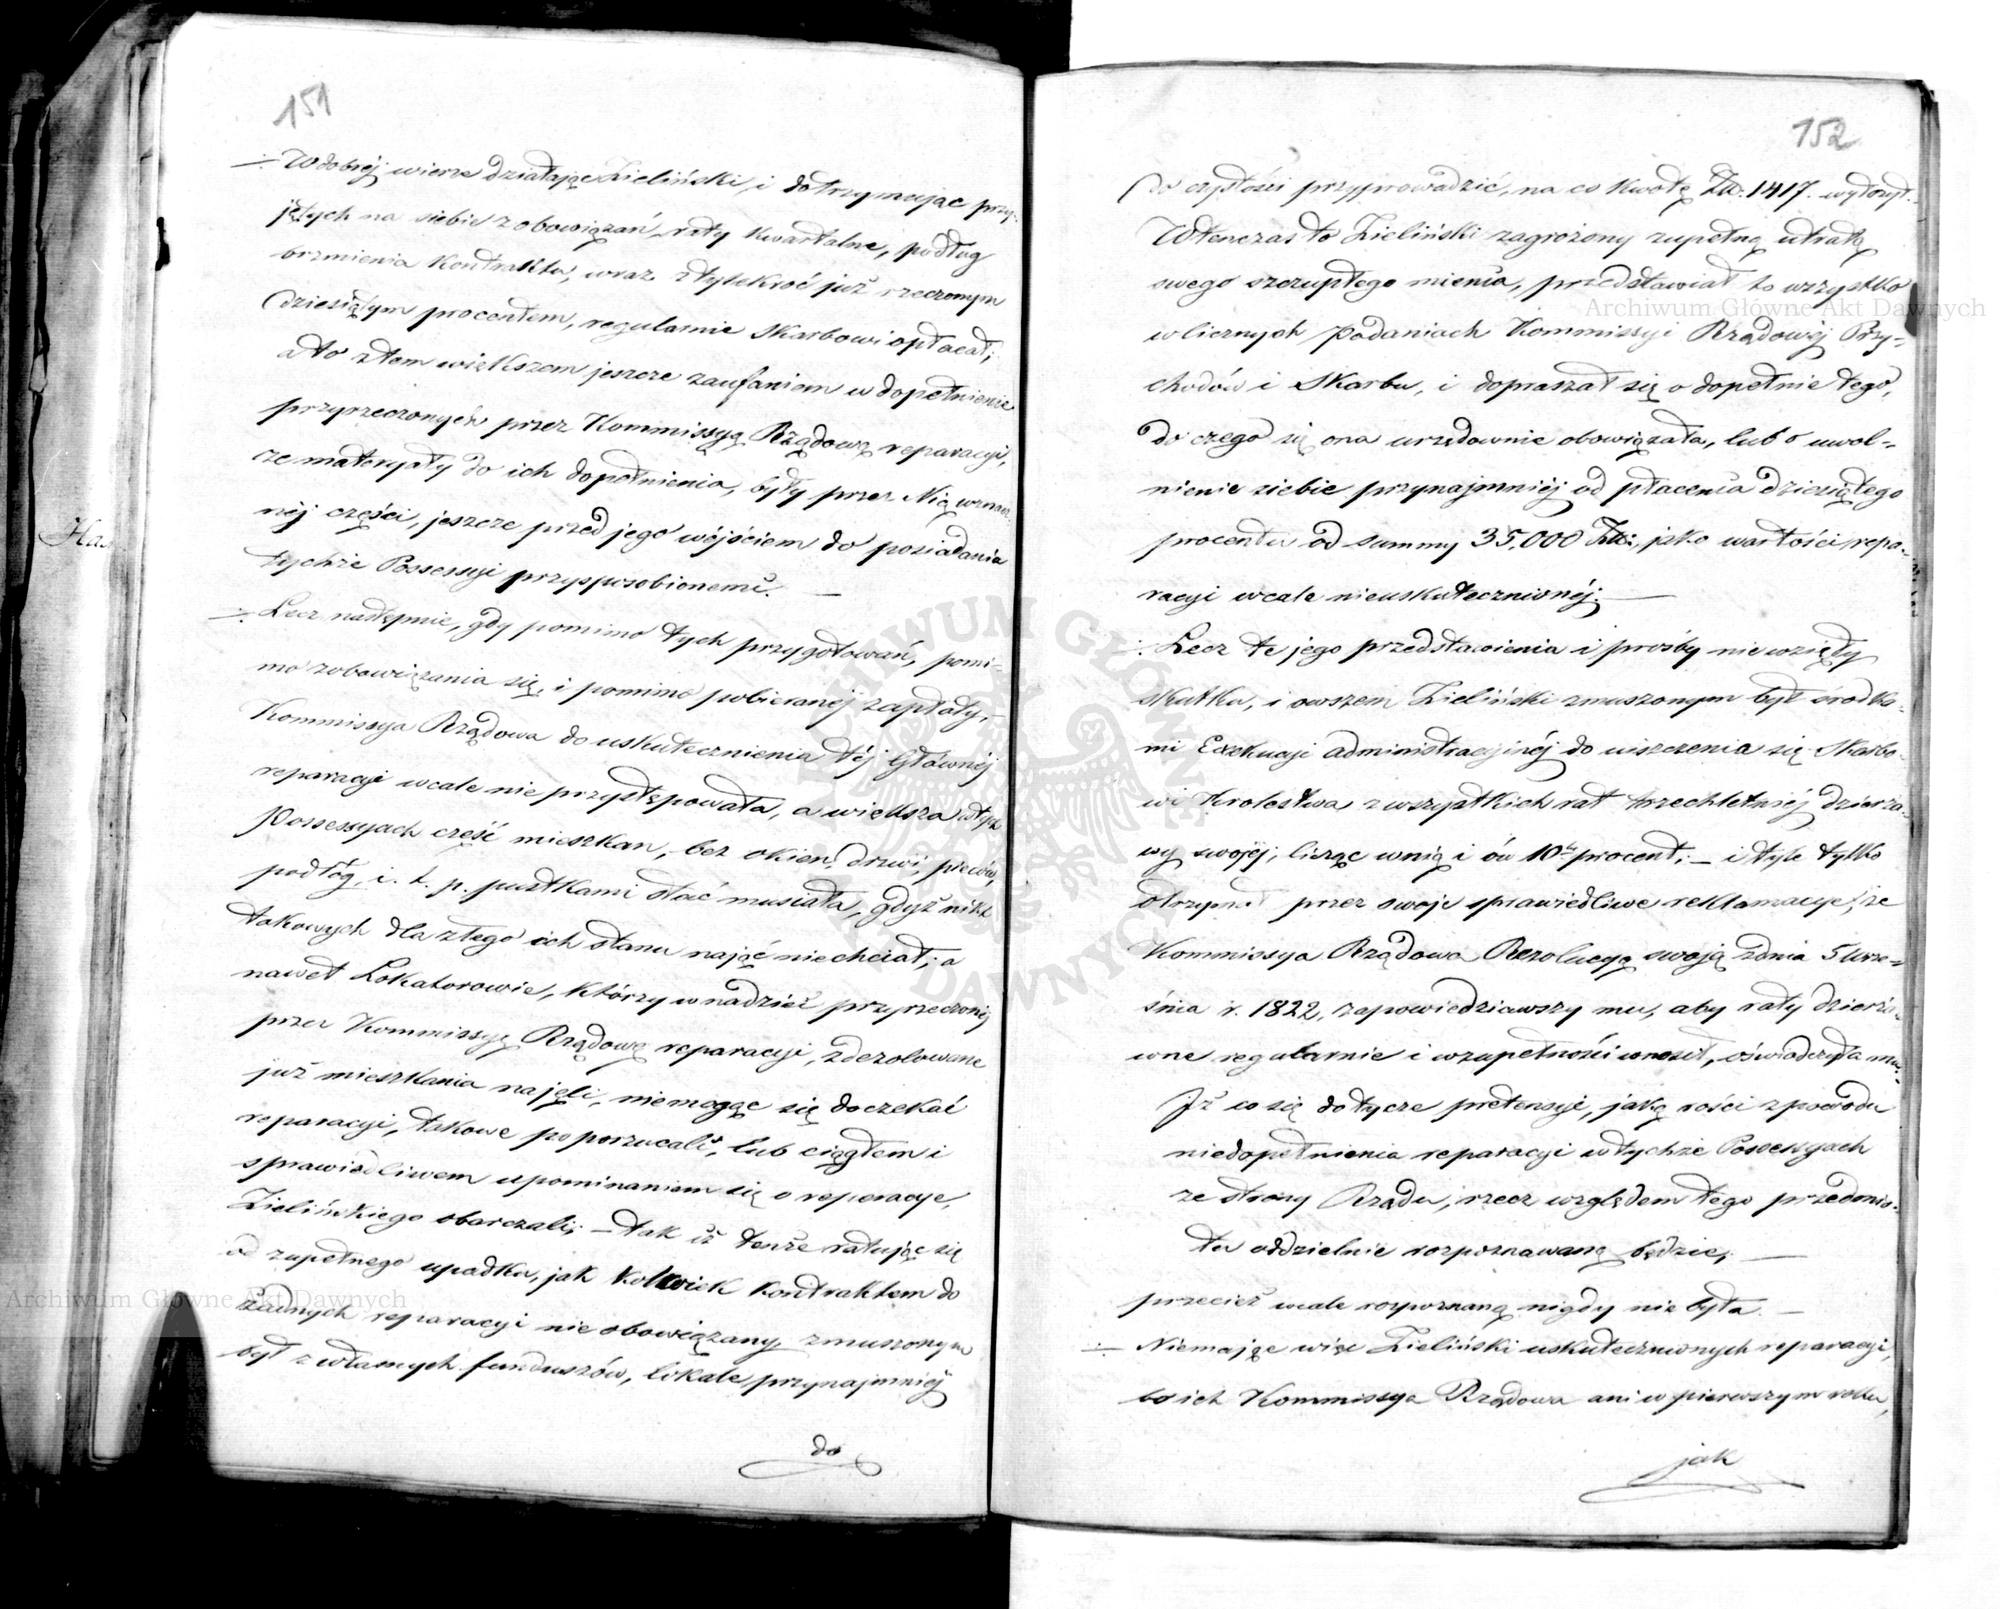 151
÷ W dobréj wierze działając Zieliński, i dotrzymując przy-
jętych na siebie zobowiązań, raty kwartalne, podług
brzmienia Kontraktu, wraz z tylekroć już rzeczonym
dziesiątym procentem, regularnie Skarbowi opłacał;
a to z tem większem jeszcze zaufaniem w dopełnienie
przyrzeczonych przez Kommissyą Rządową reparacyi,
że materyały do ich dopełnienia, były przez Nią w znacz-
néj części, jeszcze przed jego wejściem do posiadania
tychże Possessyi przysposobionemi. —
÷ Lecz następnie, gdy pomimo tych przygotowań, pomi-
mo zobowiązania się, i pomimo pobieranéj zapłaty, –
Kommissya Rządowa do uskutecznienia téj Głównéj
reparacyi wcale nie przystępowała, a większa w tych
Possessyach część mieszkan, bez okien, drzwi, pieców,
podłóg, i. t. p. pustkami stać musiała, gdyż nikt
takowych dla złego ich stanu nająć niechciał; a
nawet Lokatorowie, którzy w nadziei przyrzeczonéj
przez Kommissyę Rządowę reparacyi, zdezolowane
już mieszkania najęli, niemogąc się doczekać
reparacyi, takowe poporzucali, lub ciągłem i
sprawiedliwem upominaniem się o reparacye,
Zielińskiego obarczali; – tak iż tenże ratując się
od zupełnego upadku, jak kolwiek kontraktem do
żadnych reparacyi nie obowiązany, zmuszonym
był z własnych funduszów, lokale przynajmniéj
do
152
do czystości przyprowadzić, na co kwotę Zł. 1417. wyłożył. –
Wtenczas to Zieliński zagrożony zupełną utratą
swego szczupłego mienia, przedstawiał to wszystko
w licznych podaniach Kommissyi Rządowéj Przy-
chodów i Skarbu, i dopraszał się o dopełnie tego,
do czego się ona urzędownie obowiązała, lub o uwol-
nienie siebie przynajmniéj od płacenia dziesiątego
procentu od summy 35,000 Złt: jako wartości repa-
racyi wcale nieuskutecznionéj. —
÷ Lecz te jego przedstawienia i prośby nie wzięły
skutku, i owszem Zieliński zmuszonym był środka-
mi Exekucyi administracyjnéj do uiszczenia się Skarbo-
wi Królestwa z wszystkich rat trzechletniéj dzierża-
wy swojéj, licząc w nią i ów 10ty procent; – i tyle tylko
otrzymał przez swoje sprawiedliwe reklamacye, że
Kommissya Rządowa Rezolucyą swoją z dnia 5 Wrze-
śnia r. 1822, zapowiedziawszy mu, aby raty dzierża-
wne regularnie i w zupełności wnosił, oświadczyła mu: –
Iż co się dotycze pretensyi, jaką rości z powodu
niedopełnienia reparacyi w tychże Possessyach
ze strony Rządu, rzecz względem tego przedmio-
tu oddzielnie rozpoznawaną będzie; —
przecież wcale rozpoznaną nigdy nie była. —
÷ Niemając więc Zieliński uskutecznionych reparacyi,
bo ich Kommissya Rządowa ani w pierwszym roku,
jak
Archiwum Główne Akt Dawnych
Archiwum Główne Akt Dawnych
ARCHIWUM GŁÓWNE AKT DAWNYCH